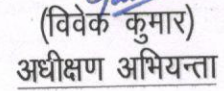 (विवेक कुमार)
अधीक्षण अभियन्ता